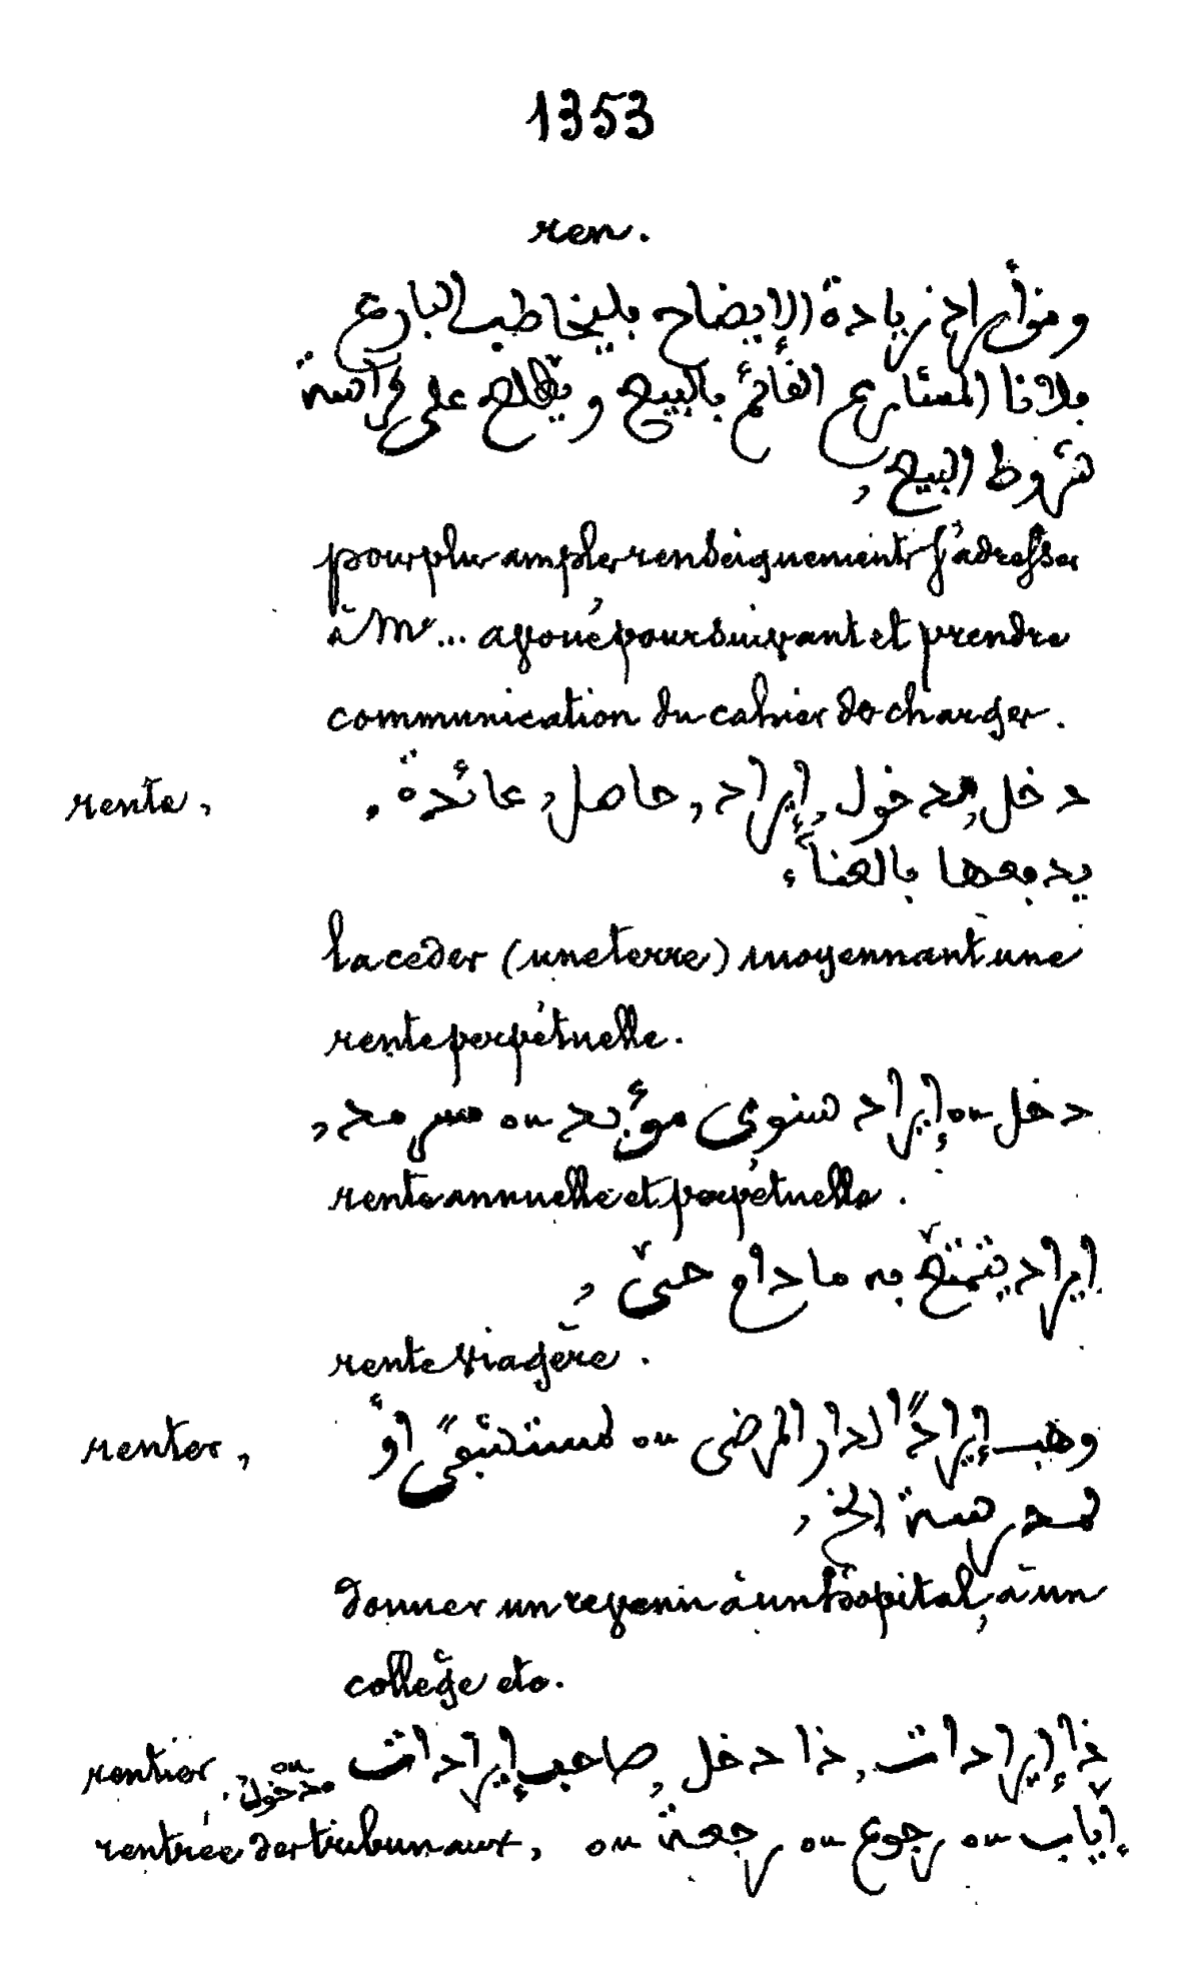 1353
ren.
ومن أراد زيادة الإيضاح فليخاطب البارع
فلانا المسارع القائم بالبيع ويطّلع على كرّاسة
شروط البيع,
pour plus amples renseignements s'adresser
à Me... avoué poursuivant et prendre
communication du cahier des charges.
rente, دخل, مدخول, إيراد, حاصل, عائدة,
يدفعها بالعناء
la céder (une terre) moyennant une
rente perpétuelle.
دخل ou إيراد سنوي مؤبد ou سرمد,
rente annuelle et perpétuelle.
إيراد يتمتّع به ما دام حيّ,
rente viagère.
renter, وهب إيرادًا لدار المرضى ou لمستشفى أو
لمدرسة الخ,
donner un revenu à un hôpital, à un
collège etc.
rentier, ذا إيرادات, ذا دخل, صاحب إيرادات ou مدخول,
rentrée des tribunaux, إيّاب ou رجوع ou رجعة ou